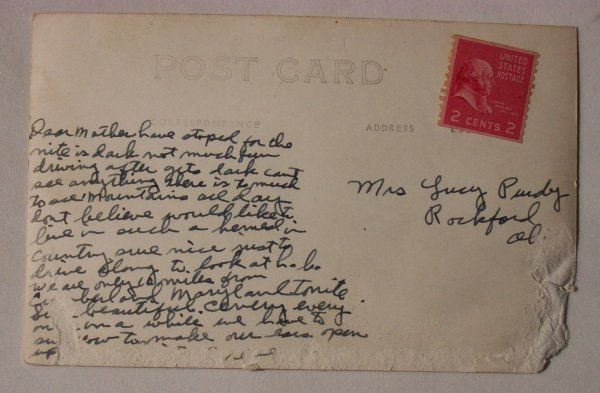 POST CARD
CORRESPONDENCE
ADDRESS
UNITED
STATES
POSTAGE
2 CENTS 2
Dear Mother have stoped for the
nite is dark not much fun
driving after gets dark cant
see anything there is to much
to see Mountains all day
dont believe would like to
live in such a hemed in
country sure nice just to
drive along to look at h.h.
we are only miles from
Maryland tonite
beautiful cenery every
on a while we have to
to make our ears open
Mrs Lucy Purdy
Rockford
O.